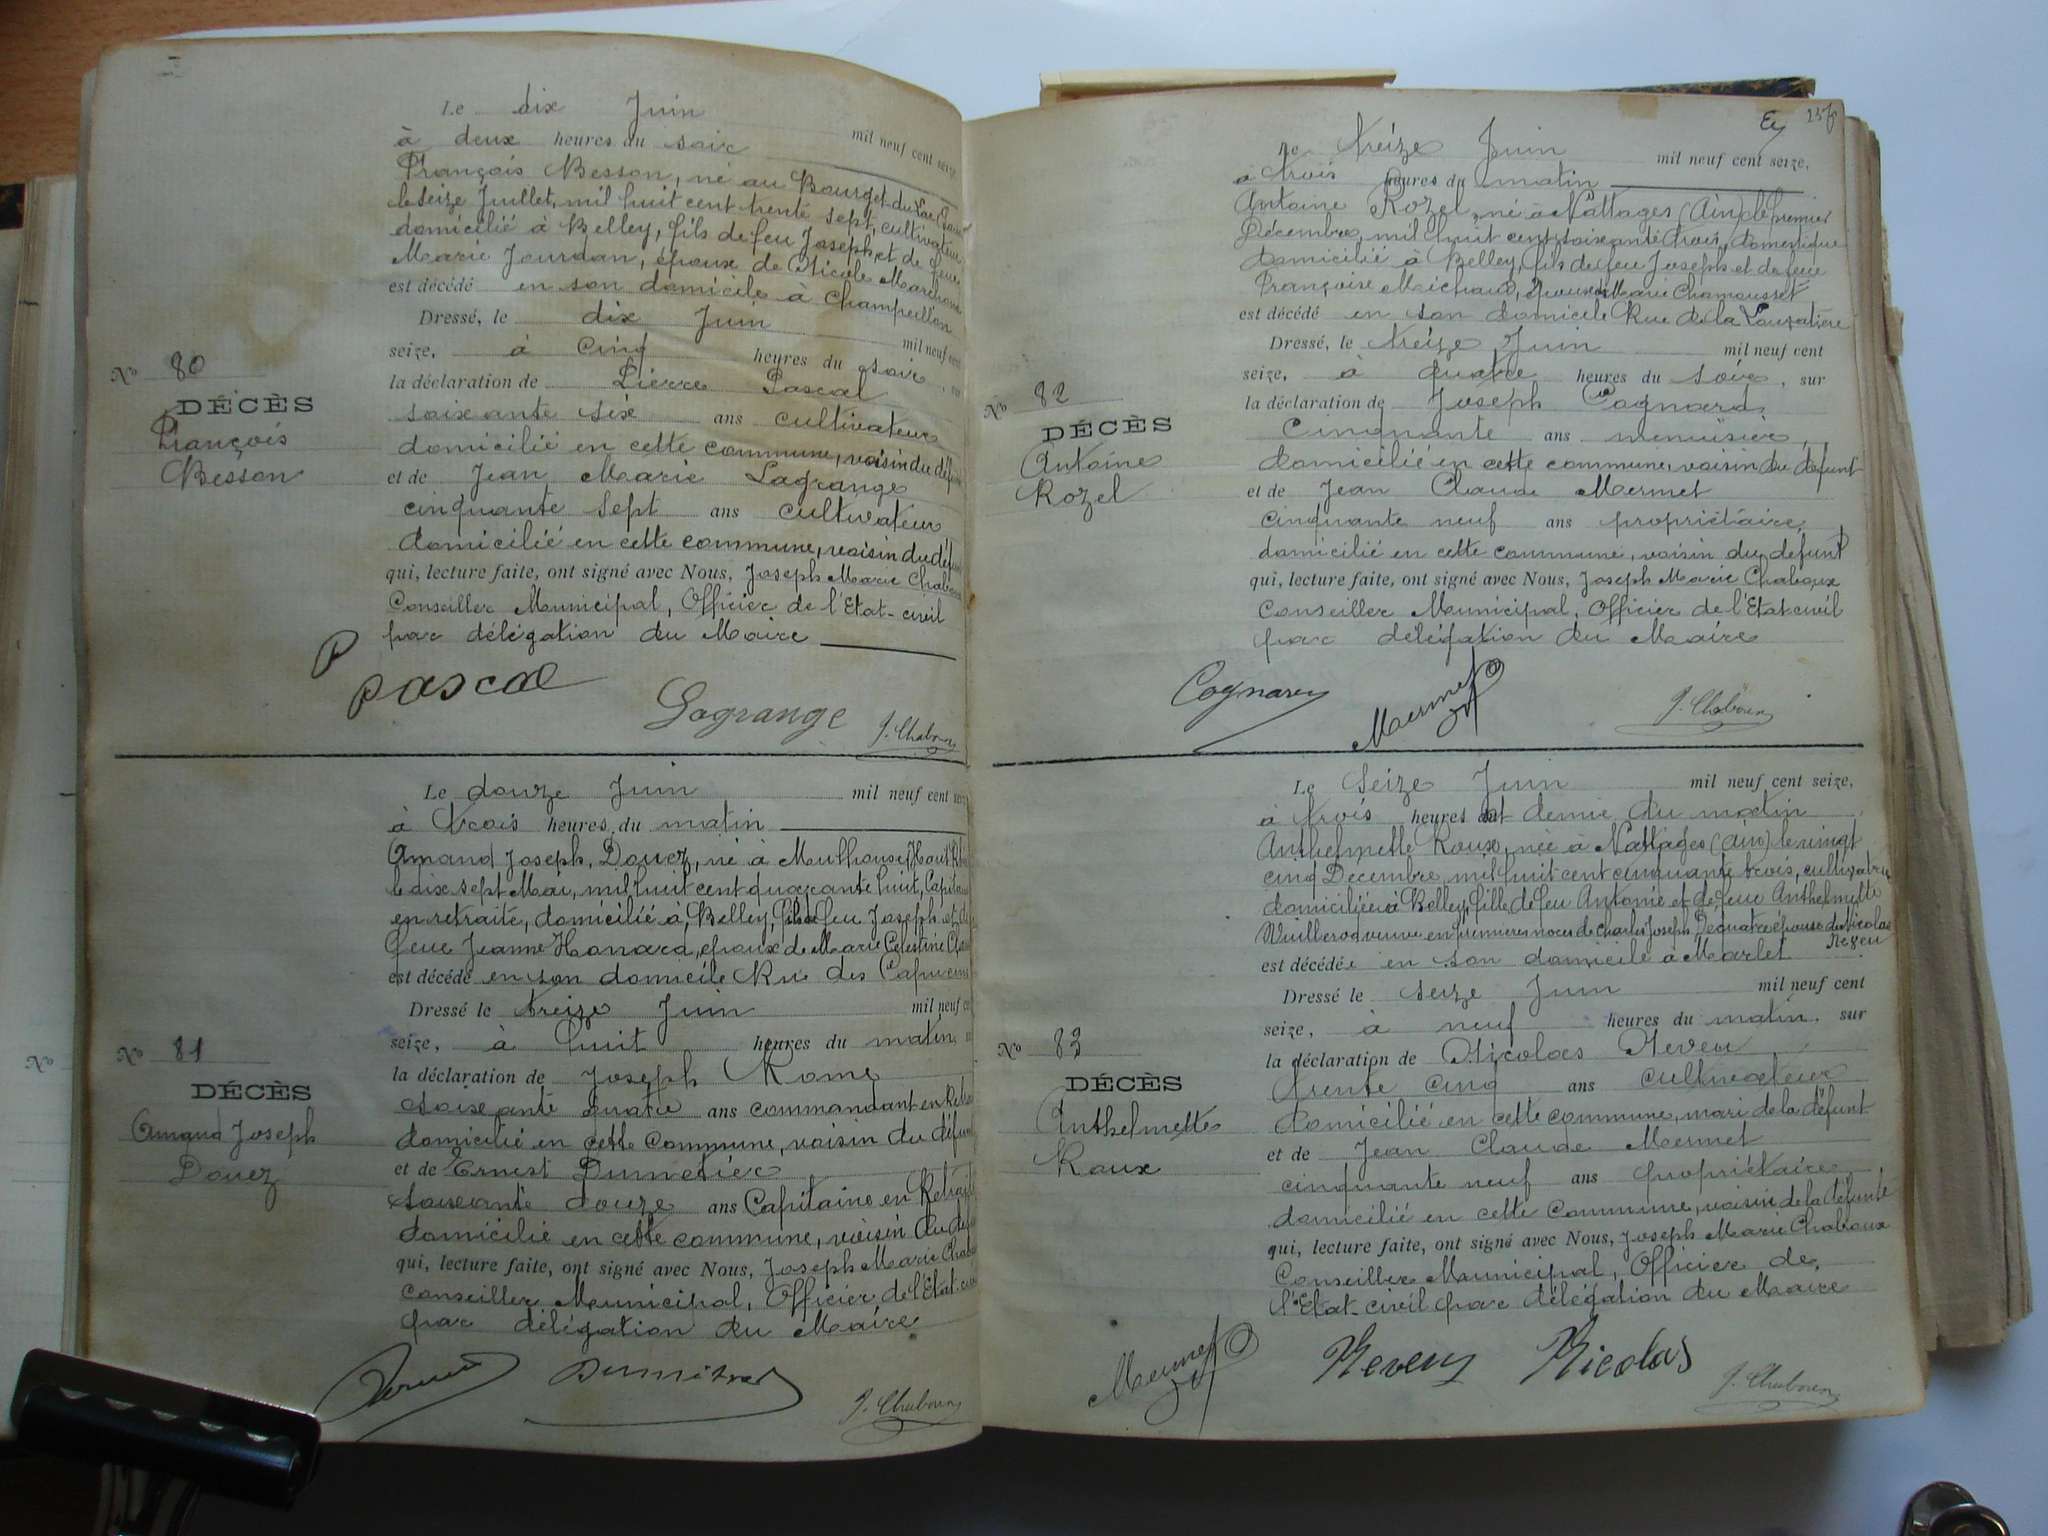 Le dix Juin mil neuf cent seize
à deux heures du soir
François Besson, né au Bourget-du-Lac
le seize Juillet, mil huit cent trente sept, cultivateur
domicilié à Belley, fils de feu Joseph et de feue
Marie Jourdan, époux de Nicole
est décédé en son domicile à Champeillon
Dressé, le dix Juin mil neuf cent
seize, à cinq heures du soir,
la déclaration de Pierre Pascal
soixante six ans cultivateur
domicilié en cette commune, voisin du
et de Jean Marie Lagrange
cinquante sept ans cultivateur
domicilié en cette commune, voisin du
qui, lecture faite, ont signé avec Nous, Joseph Marie
Conseiller Municipal, Officier de l'Etat-civil
par délégation du Maire
No 80
DÉCÈS
François
Besson
P
Pascal
Lagrange J. Chaboux
Le douze Juin mil neuf cent
à trois heures du matin
Amand Joseph, Douez, né à Mulhouse
le dix sept Mai, mil huit cent quarante huit,
en retraite, domicilié à Belley, fils de feu Joseph et
feue Jeanne Honara, époux de Marie Célestine
est décédé en son domicile Rue des
Dressé le treize Juin mil neuf
seize, à huit heures du matin
la déclaration de Joseph Rome
soixante quatre ans commandant en
domicilié en cette commune, voisin du
et de Ernest Dumetier
soixante douze ans Capitaine en
domicilié en cette commune, voisin du
qui, lecture faite, ont signé avec Nous, Joseph Marie
Conseiller Municipal, Officier de l'Etat
par délégation du Maire
No 81
DÉCÈS
Amand Joseph
Douez
J. Chaboux
Le treize Juin mil neuf cent seize,
à trois heures du matin
Antoine Rozel, né à Nattages (Ain) le premier
Décembre, mil huit cent soixante trois, domestique
domicilié à Belley, fils de feu Joseph et de feue
Françoise Michaud, époux de Marie Chamousset
est décédé en son domicile Rue de la
Dressé, le treize Juin mil neuf cent
seize, à quatre heures du soir, sur
la déclaration de Joseph Cognard,
Cinquante ans menuisier,
domicilié en cette commune, voisin du défunt
et de Jean Claude Mermet
cinquante neuf ans propriétaire
domicilié en cette commune, voisin du défunt
qui, lecture faite, ont signé avec Nous, Joseph Marie Chaboux
Conseiller Municipal, Officier de l'Etat civil
par délégation du Maire
No 82
DÉCÈS
Antoine
Rozel
Cognard Mermet J. Chaboux
Le seize Juin mil neuf cent seize,
à trois heures et demie du matin
Anthelmette Roux, née à Nattages (Ain) le vingt
cinq Décembre, mil huit cent cinquante trois, cultivatrice
domiciliée à Belley, fille de feu Antoine et de feue Anthelmette
veuve en premières noces de Charles Joseph Dequatre épouse de Nicolas
Neveu
est décédée en son domicile à Marlet
Dressé le seize Juin mil neuf cent
seize, à neuf heures du matin, sur
la déclaration de Nicolas Neveu
trente cinq ans cultivateur
domicilié en cette commune, mari de la défunt
et de Jean Claude Mermet
cinquante neuf ans propriétaire
domicilié en cette commune, voisin de la défunte
qui, lecture faite, ont signé avec Nous, Joseph Marie Chaboux
Conseiller Municipal, Officier de
l'Etat-civil par délégation du Maire
No 83
DÉCÈS
Anthelmette
Roux
Mermet Neveu Nicolas J. Chaboux